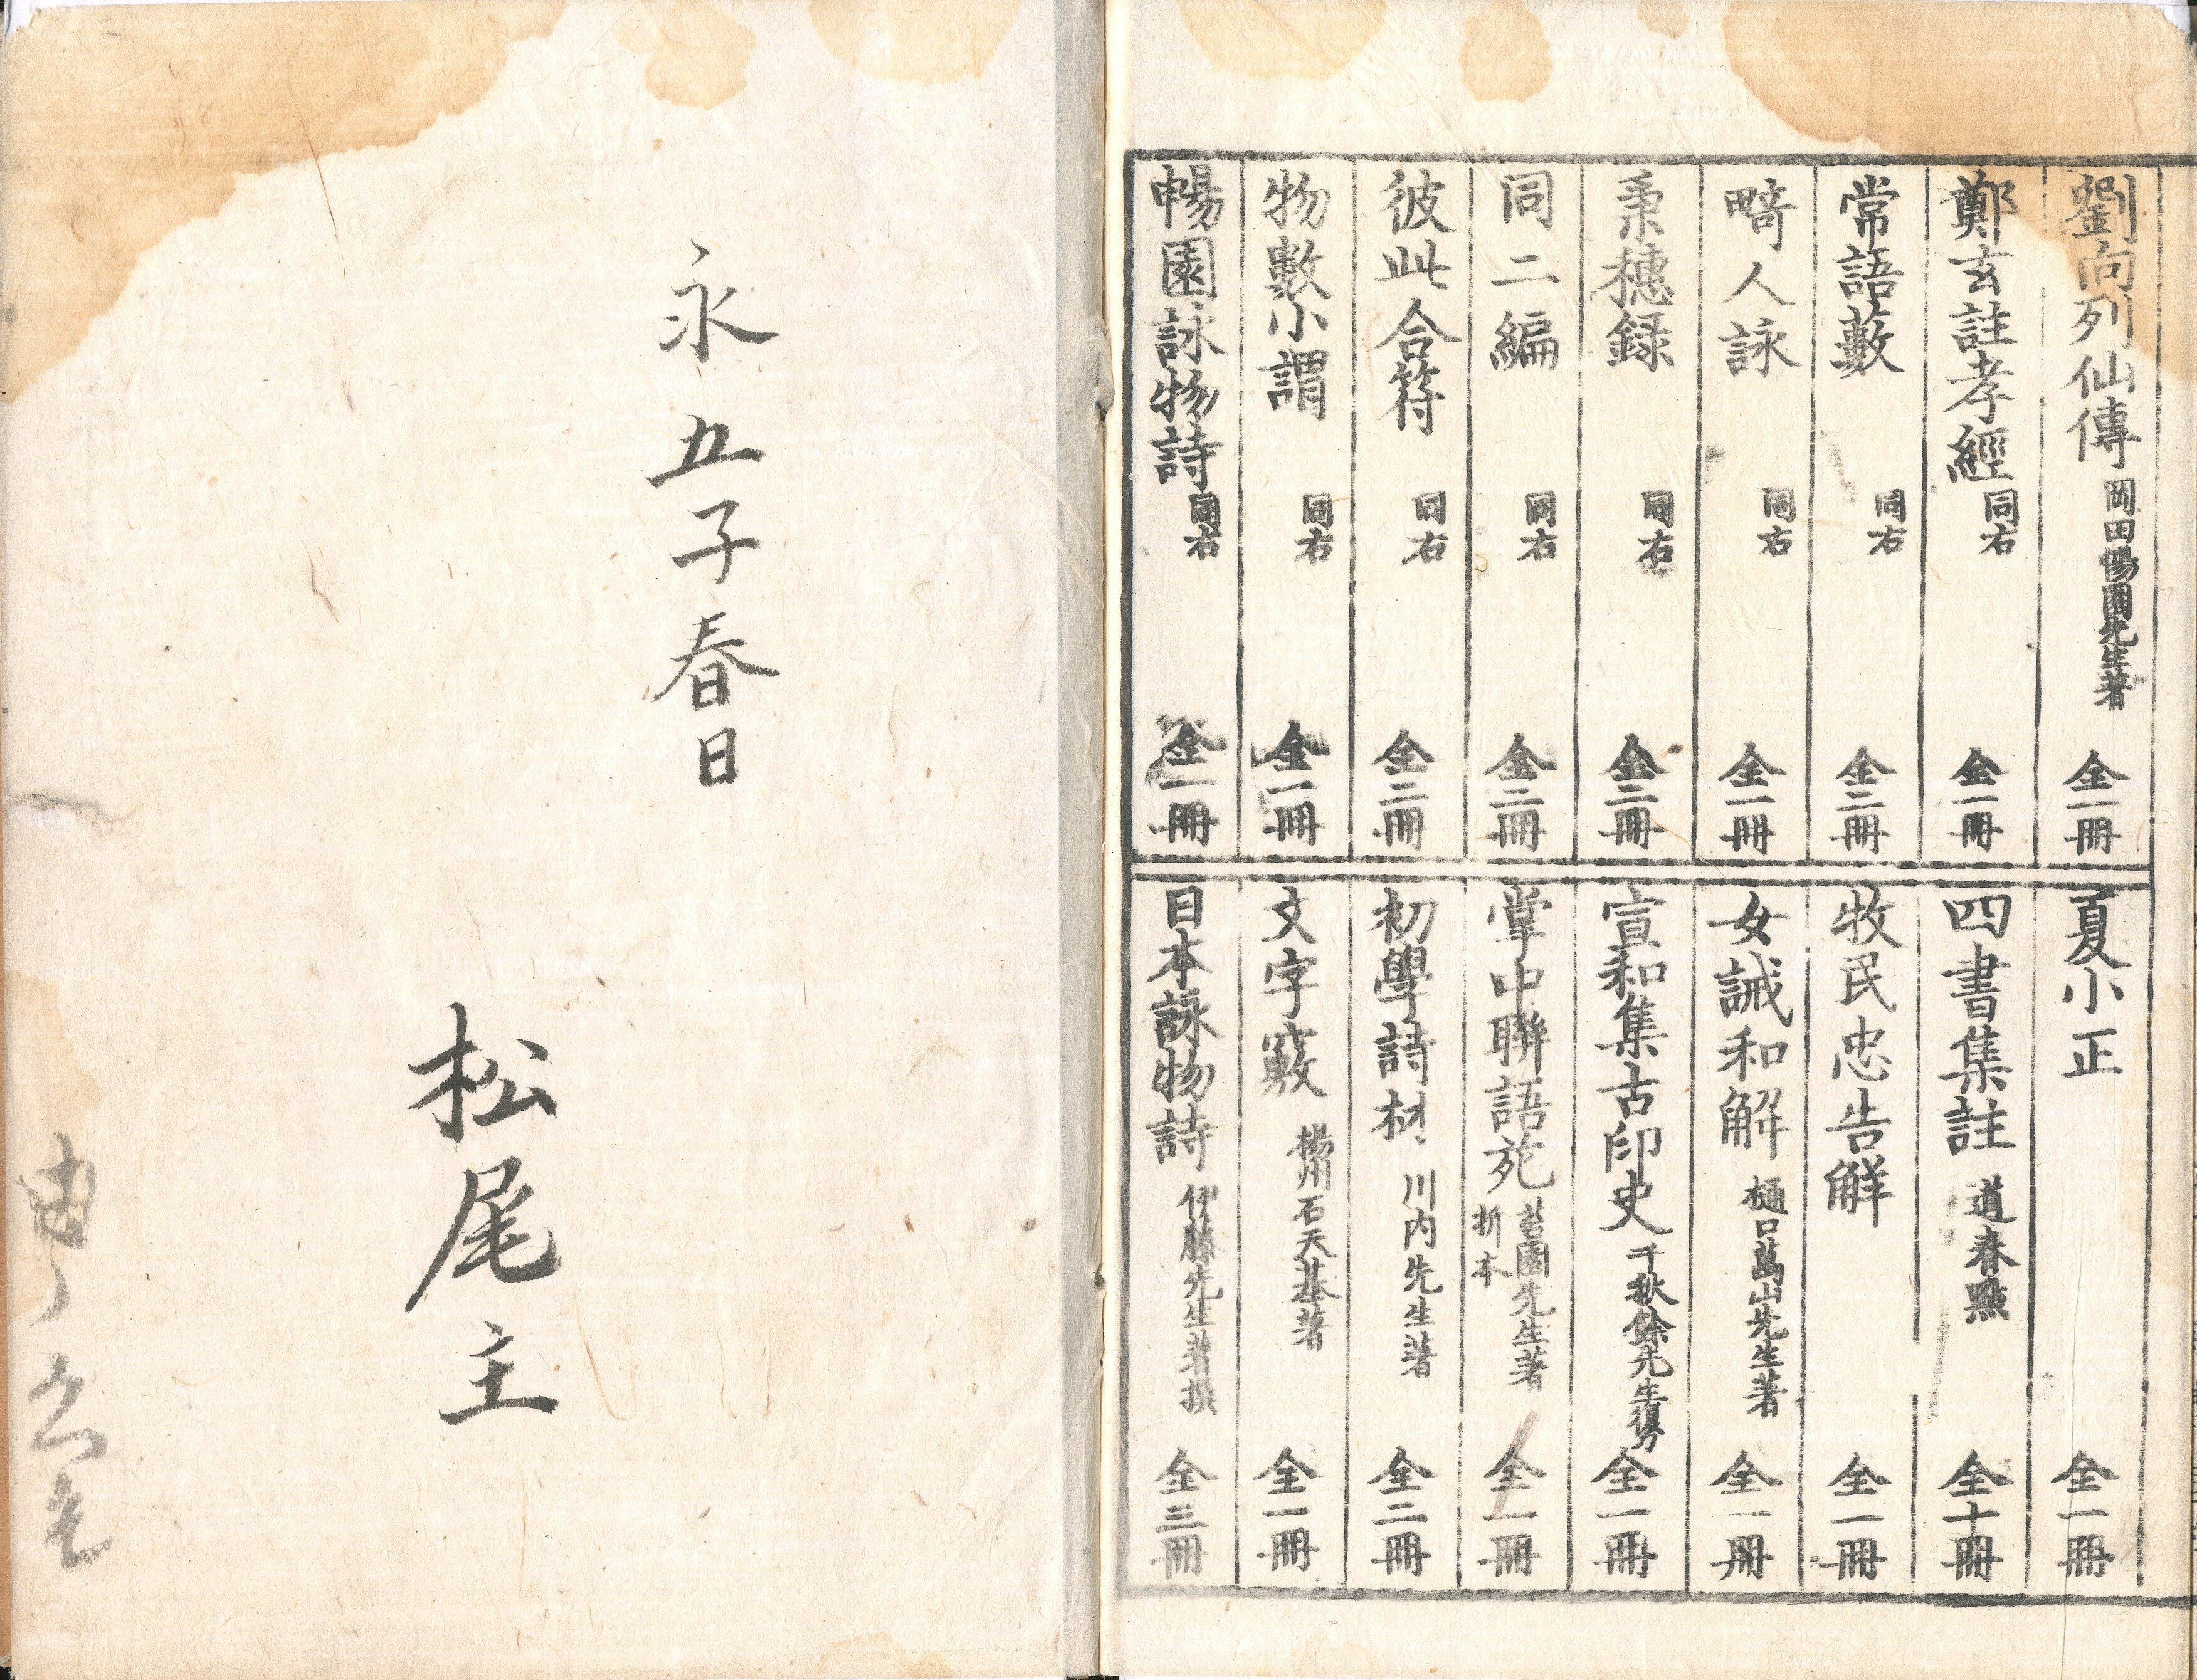 劉向列仙傳 岡田暢園先生著 全一冊
鄭玄註孝經 同右 全一冊
常語藪 同右 全二冊
畸人詠 同右 全一冊
秉穗録 同右 全二冊
同二編 同右 全二冊
彼此合符 同右 全二冊
物數小謂 同右 全一冊
暢園詠物詩 同右 全一冊
夏小正 全一冊
四書集註 道春點 全十冊
牧民忠告解 全一冊
女誡和解 樋口 山先生著 全一冊
宣和集古印史 千秋餘先生 全一冊
掌中聯語苑 苔園先生著 折本 全一冊
初學詩材 川内先生著 全二冊
文字竅 楊州石天基著 全一冊
日本詠物詩 伊藤先生著撰 全三冊
永五子春日
松尾主